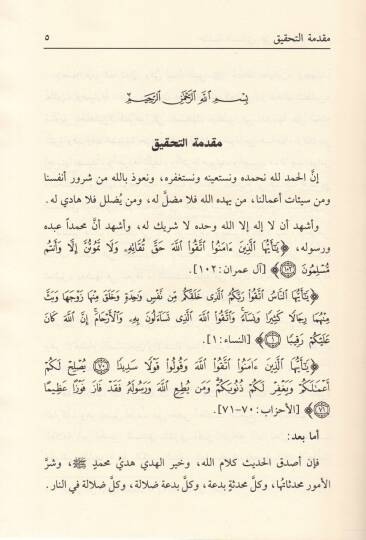 مقدمة التحقيق ٥
بِسْمِ اللَّهِ الرَّحْمَٰنِ الرَّحِيمِ
مقدمة التحقيق
إنَّ الحمد لله نحمده ونستعينه ونستغفره، ونعوذ بالله من شرور أنفسنا
ومن سيئات أعمالنا، من يهده الله فلا مضلَّ له، ومن يُضلل فلا هادي له.
وأشهد أن لا إله إلا الله وحده لا شريك له، وأشهد أنَّ محمداً عبده
ورسوله، ﴿يَٰٓأَيُّهَا الَّذِينَ ءَامَنُوا۟ اتَّقُوا۟ اللَّهَ حَقَّ تُقَاتِهِۦ وَلَا تَمُوتُنَّ إِلَّا وَأَنتُم
مُّسْلِمُونَ ﴿١٠٢﴾﴾ [آل عمران: ١٠٢].
﴿يَٰٓأَيُّهَا النَّاسُ اتَّقُوا۟ رَبَّكُمُ الَّذِى خَلَقَكُم مِّن نَّفْسٍ وَٰحِدَةٍ وَخَلَقَ مِنْهَا زَوْجَهَا وَبَثَّ
مِنْهُمَا رِجَالًا كَثِيرًا وَنِسَآءً وَاتَّقُوا۟ اللَّهَ الَّذِى تَسَآءَلُونَ بِهِۦ وَالْأَرْحَامَ إِنَّ اللَّهَ كَانَ
عَلَيْكُمْ رَقِيبًا ﴿١﴾﴾ [النساء: ١].
﴿يَٰٓأَيُّهَا الَّذِينَ ءَامَنُوا۟ اتَّقُوا۟ اللَّهَ وَقُولُوا۟ قَوْلًا سَدِيدًا ﴿٧٠﴾ يُصْلِحْ لَكُمْ
أَعْمَٰلَكُمْ وَيَغْفِرْ لَكُمْ ذُنُوبَكُمْ وَمَن يُطِعِ اللَّهَ وَرَسُولَهُۥ فَقَدْ فَازَ فَوْزًا عَظِيمًا
﴿٧١﴾﴾ [الأحزاب: ٧٠-٧١].
أما بعد:
فإن أصدق الحديث كلام الله، وخير الهدي هديُ محمدٍ ﷺ، وشرَّ
الأمور محدثاتُها، وكلَّ محدثةٍ بدعة، وكلَّ بدعة ضلالة، وكلَّ ضلالة في النار.